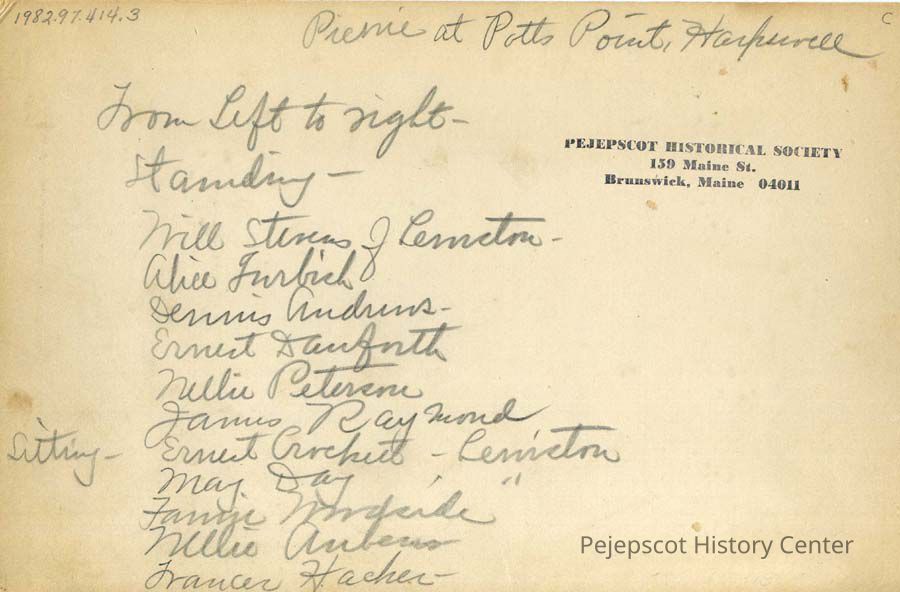 1982.97.414.3
C
Picnic at Potts Point, Harpswell
From Left to right -
PEJEPSCOT HISTORICAL SOCIETY
159 Maine St.
Brunswick, Maine 04011
Standing -
Will Stevens of Lewiston -
Alice Furbish
Dennis Andrews -
Ernest Danforth
Nellie Peterson
James Raymond
Sitting - Ernest Crockett - Lewiston
May Day "
Fannie Woodside
Nellie
Frances Hacker -
Pejepscot History Center